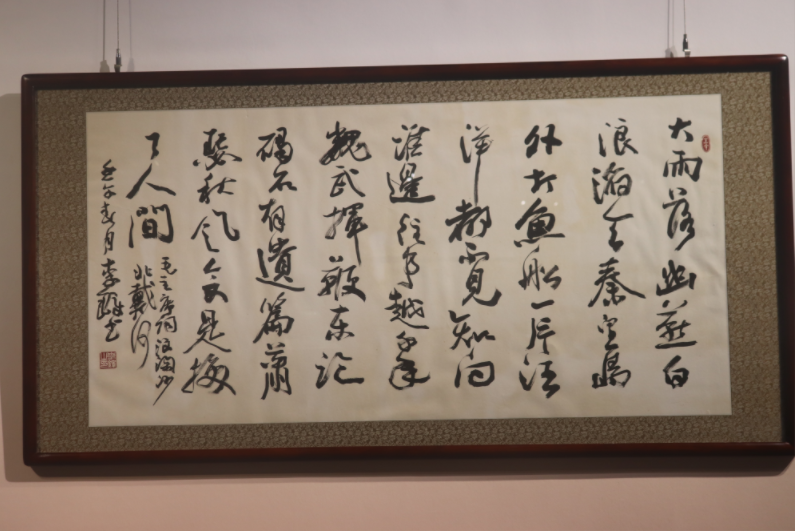 大雨落幽燕白
浪滔天秦皇島
外打魚船一片汪
洋都不見知向
誰邊往事越千年
魏武揮鞭东临
碣石有遺篇蕭
瑟秋风今又是换
了人間
毛主席词浪淘沙
北戴河
壬午春月李书